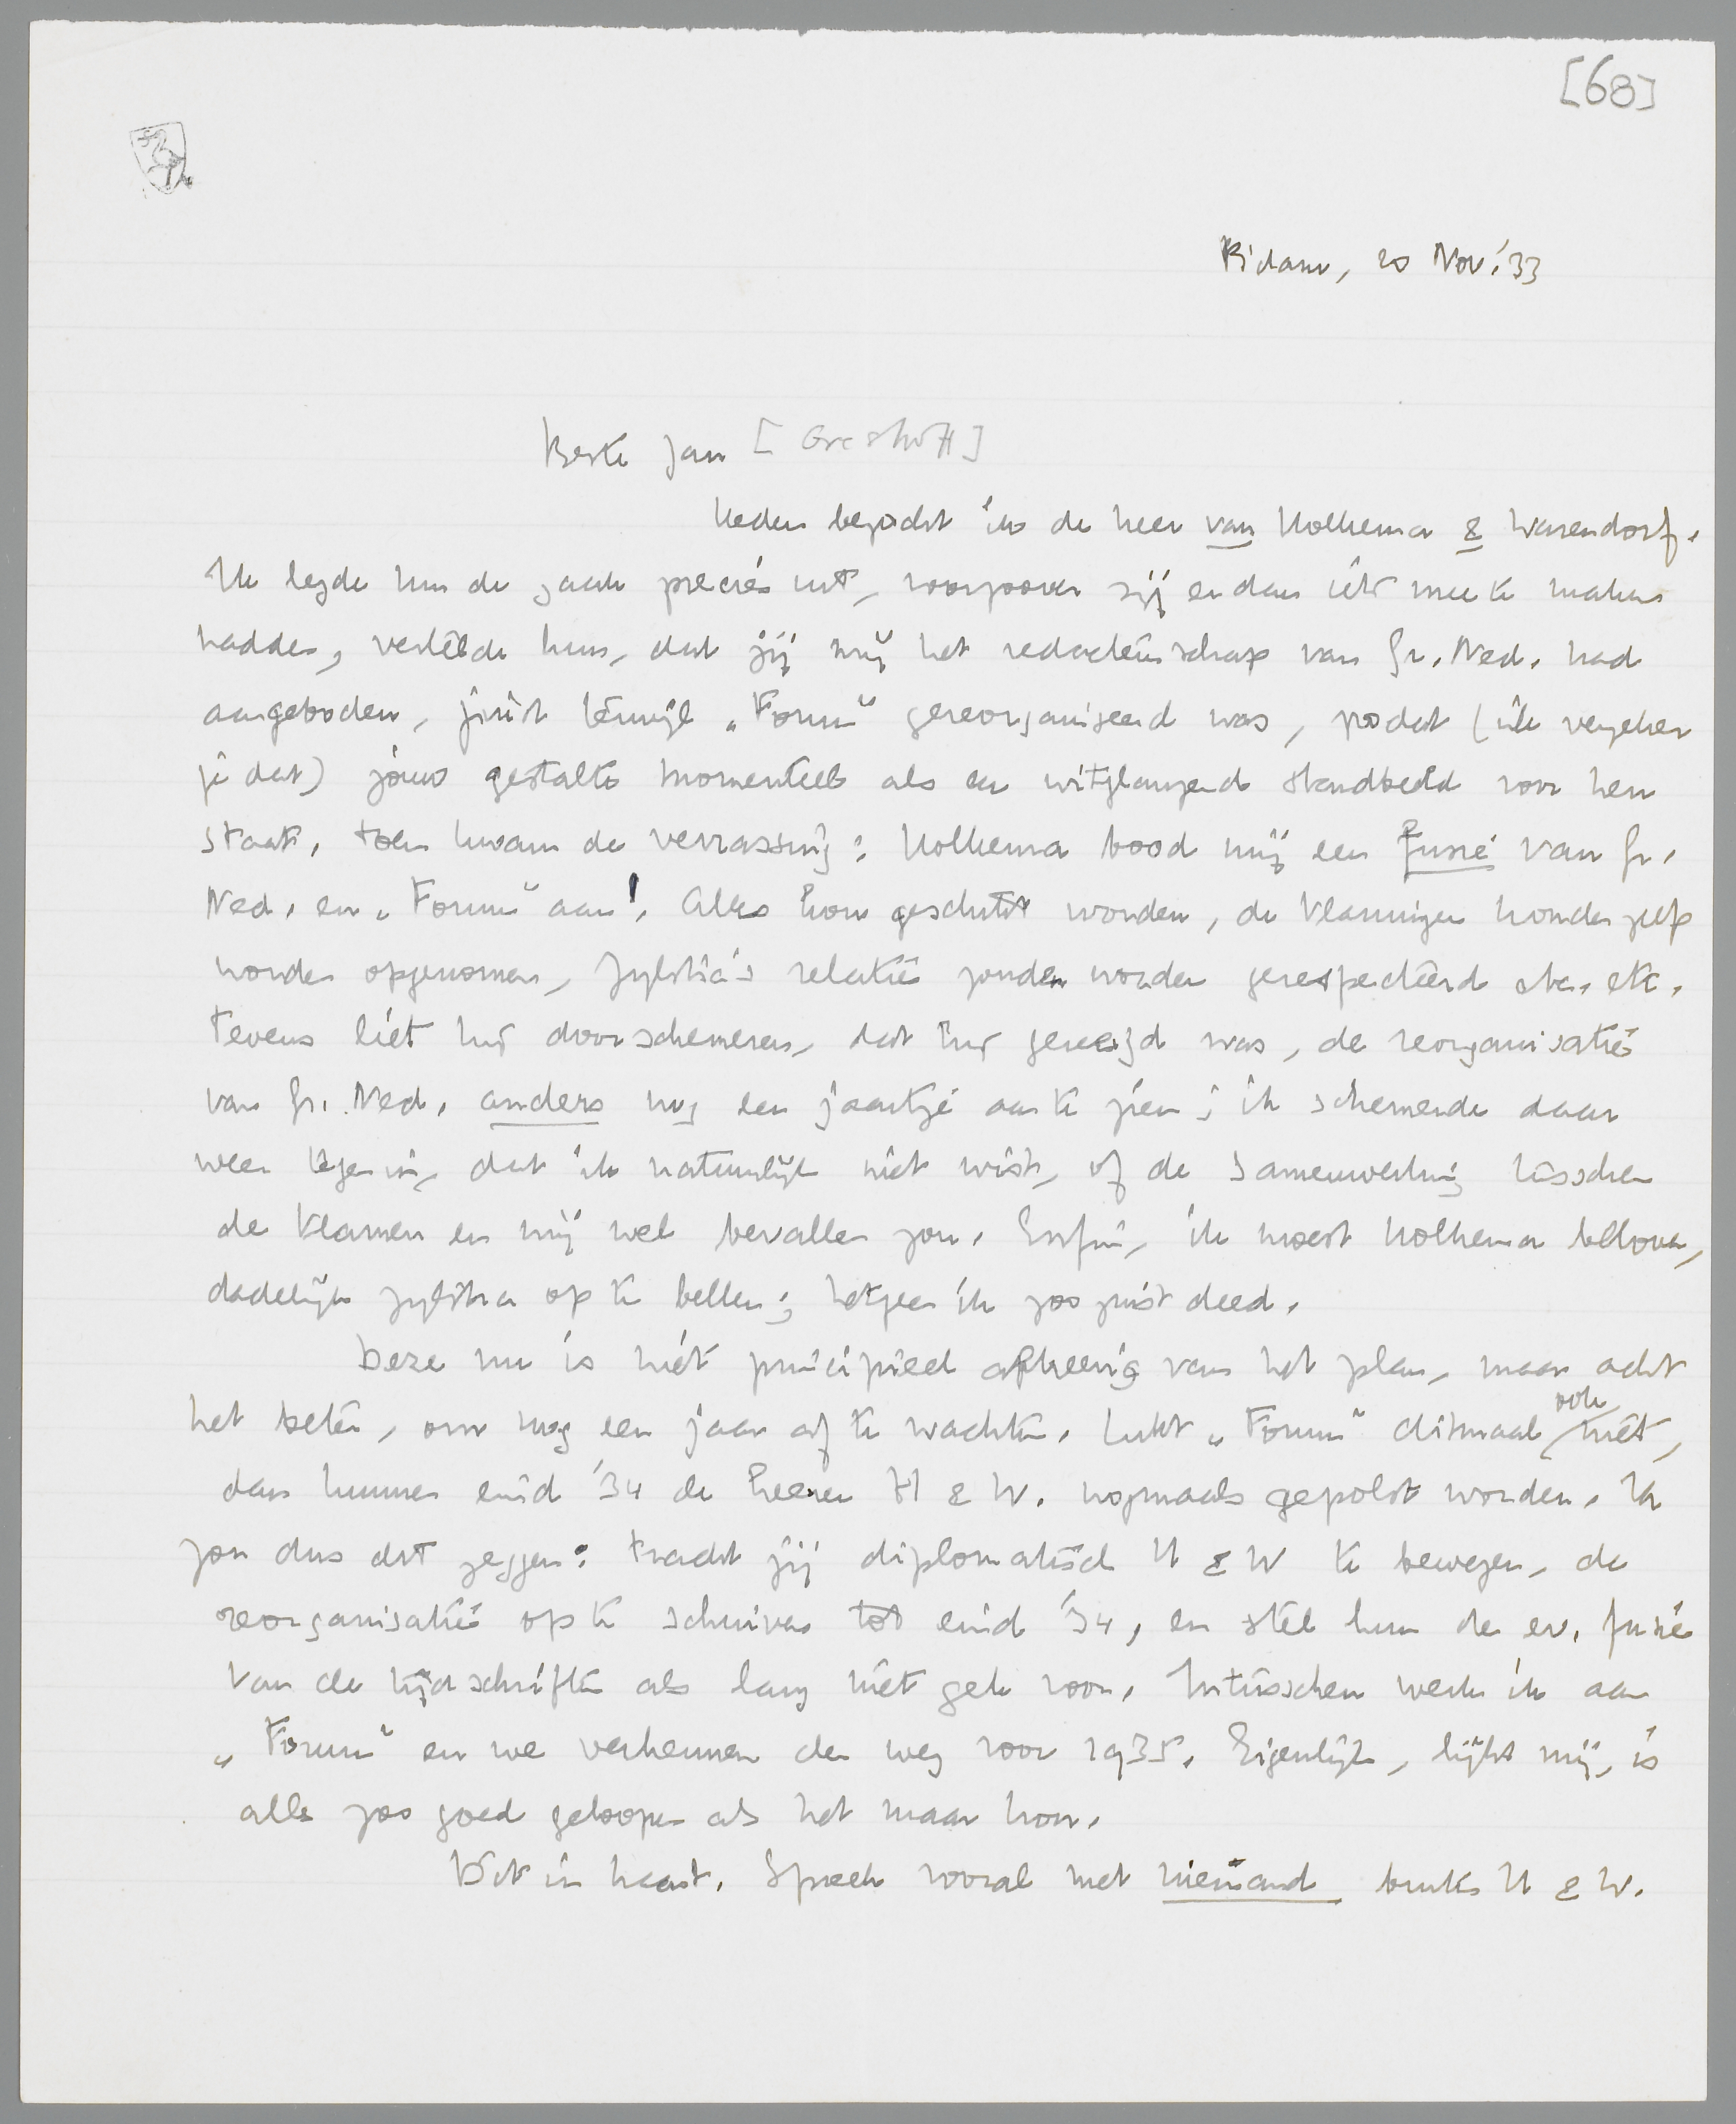 [68]
R'dam, 20 Nov. '33
Beste Jan [Greshoff]
Heden bezocht ik de heer van Holkema & Warendorf.
Ik legde hun de zaak precies uit, voorzoover zij er dan iets mee te maken
hadden, vertelde hun, dat jij mij het redacteurschap van Gr. Ned. had
aangeboden, juist terwijl „Forum" gereorganiseerd was, zodat (ik verzeker
je dat) jouw gestalte momenteel als een witglanzend standbeeld voor hen
staat. Toen kwam de verrassing: Holkema bood mij een fusie van Gr.
Ned. en „Forum" aan! Alles kon geschikt worden, de Vlamingen konden zelf
worden opgenomen, Zijlstra's relaties zouden worden gerespecteerd etc. etc.
Tevens liet hij doorschemeren, dat hij geneigd was, de reorganisatie
van Gr. Ned. anders nog een jaartje aan te zien; ik schemerde daar
weer tegen in, dat ik natuurlijk niet wist, of de samenwerking tusschen
de Vlamen en mij wel bevallen zou. Enfin, ik moest Holkema beloven,
dadelijk Zijlstra op te bellen; hetgeen ik zoo juist deed.
Deze nu is niet principieel afkeerig van het plan, maar acht
het beter, om nog een jaar af te wachten. Lukt „Forum" ditmaal ook niet,
dan kunnen eind '34 de heeren H & W. nogmaals gepolst worden. Ik
zou dus dit zeggen: tracht jij diplomatisch H & W te bewegen, de
reorganisatie op te schuiven tot eind '34, en stel hun de ev. fusie
van de tijdschriften als lang niet gek voor. Intusschen werk ik aan
„Forum" en we verkennen den weg voor 1935. Eigenlijk, lijkt mij, is
alles zoo goed geloopen als het maar kon.
Dit in haast. Spreek vooral met niemand buiten H & W.